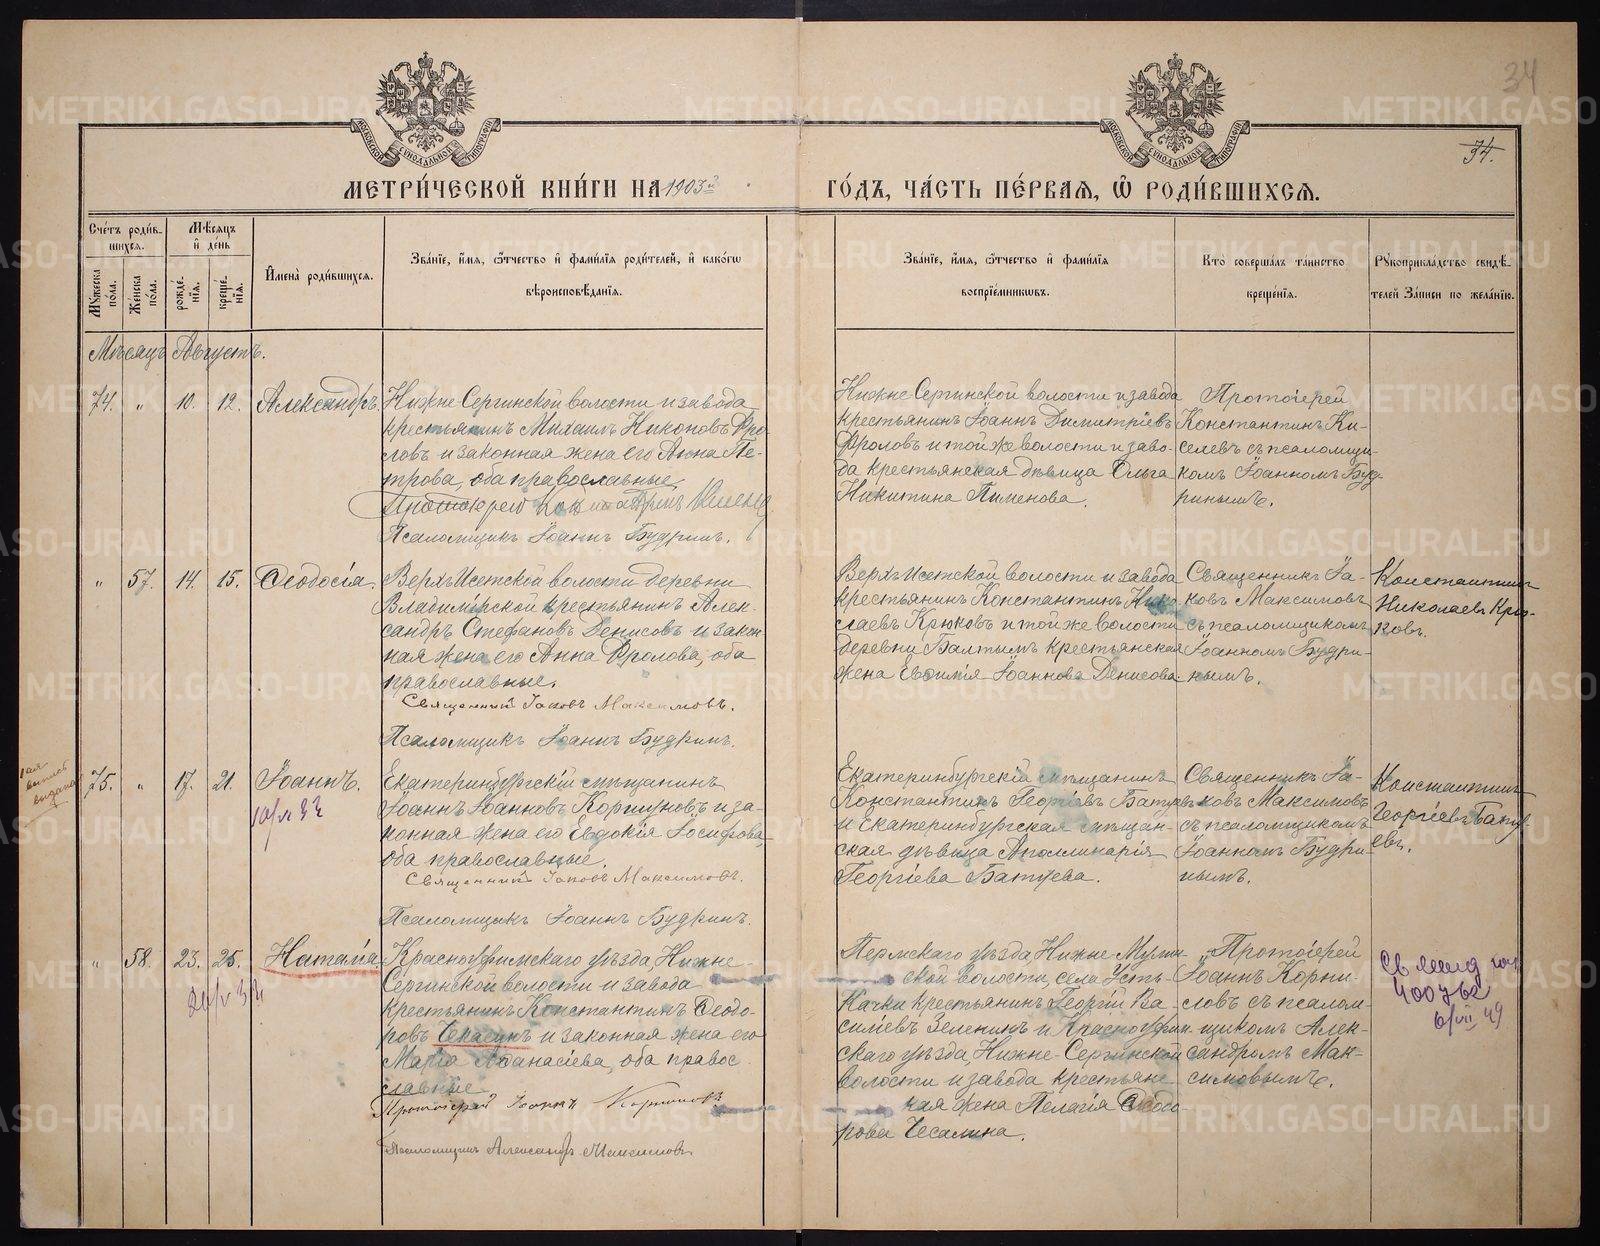 34
34.
МЕТРИ́ЧЕСКОЙ КНИ́ГИ НА 1903й
ГО́ДЪ, ЧА́СТЬ ПЕ́РВАѦ, Ѡ҆ РОДИ́ВШИХСѦ.
Сче́тъ роди́в-
шихсѧ.
Мꙋ́жеска по́ла.
Же́нска по́ла.
Мѣ́сѧцъ
и҆ де́нь
рожде́-
нїѧ.
креще́-
нїѧ.
И҆мена̀ роди́вшихсѧ.
Зва́нїе, и҆́мѧ, ѻ҆́тчество и҆ фами́лїѧ роди́телей, и҆ како́гѡ
вѣроисповѣ́данїѧ.
Зва́нїе, и҆́мѧ, ѻ҆́тчество и҆ фами́лїѧ
воспрїе́мникѡвъ.
Кто̀ соверша́лъ та́инство
креще́нїѧ.
Рꙋкоприкла́дство свидѣ́-
телей за́писи по жела́нїю.
Мѣсяцъ Августъ.
74. " 10. 12. Александръ.
Нижне-Сергинской волости и завода
крестьянинъ Михаилъ Никоновъ Фро-
ловъ и законная жена его Анна Пе-
трова, оба православные.
Псаломщикъ Іоаннъ Будринъ.
Нижне-Сергинской волости и завода
крестьянинъ Іоаннъ Димитріевъ
Фроловъ и той же волости и заво-
да крестьянская дѣвица Ольга
Никитина Пименова.
Протоіерей
Константинъ Ки-
селевъ съ псаломщи-
комъ Іоанномъ Буд-
ринымъ.
" 57. 14. 15. Ѳеодосія.
Верхъ-Исетской волости деревни
Владимірской крестьянинъ Алек-
сандръ Стефановъ Денисовъ и закон-
ная жена его Анна Фролова, оба
православные.
Священникъ Іаковъ Максимовъ.
Псаломщикъ Іоаннъ Будринъ.
Верхъ-Исетской волости и завода
крестьянинъ Константинъ Нико-
лаевъ Крюковъ и той же волости
деревни Балтымъ крестьянская
жена Евфимія Іоаннова Денисова.
Священникъ Іа-
ковъ Максимовъ
съ псаломщикомъ
Іоанномъ Будри-
нымъ.
Константинъ
Николаевъ Крю-
ковъ.
75. " 17. 21. Іоаннъ.
Екатеринбургскій мѣщанинъ
Іоаннъ Іоанновъ Коршуновъ и за-
конная жена его Евдокія Іосифова,
оба православные.
Священникъ Іаковъ Максимовъ.
Псаломщикъ Іоаннъ Будринъ.
Екатеринбургскій мѣщанинъ
Константинъ Георгіевъ Батуевъ
и Екатеринбургская мѣщан-
ская дѣвица Аполлинарія
Георгіева Батуева.
Священникъ Іа-
ковъ Максимовъ
съ псаломщикомъ
Іоанномъ Будри-
нымъ.
Константинъ
Георгіевъ Бату-
евъ.
" 58. 23. 25. Наталія
Красноуфимскаго уѣзда, Нижне-
Сергинской волости и завода
крестьянинъ Константинъ Ѳеодо-
ровъ Чекасинъ и законная жена его
Марія Аѳанасіева, оба право-
славные.
Протоіерей Іоаннъ Корниловъ
Псаломщикъ Александръ Максимовъ
Пермскаго уѣзда, Нижне-Мулин-
ской волости, села Усть-
Качки крестьянинъ Георгій Ва-
силіевъ Зеленинъ и Красноуфим-
скаго уѣзда, Нижне-Сергинской
волости и завода крестьянс-
кая жена Пелагія Ѳеодо-
рова Чесалина.
Протоіерей
Іоаннъ Корни-
ловъ съ псалом-
щикомъ Алек-
сандромъ Мак-
симовымъ.
400762
6/VII 49